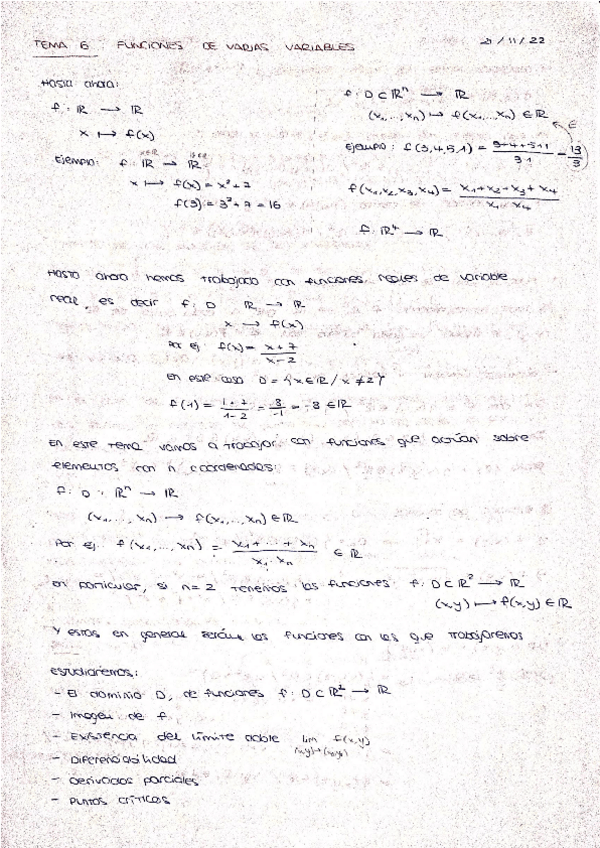 TEMA 6 : FUNCIONES DE VARIAS VARIABLES
21/11/22
Hasta ahora:
f: ℝ → ℝ
x ↦ f(x)
Ejemplo: f: ℝ → ℝ
x ↦ f(x) = x² + 7
f(3) = 3² + 7 = 16
f: D ⊂ ℝⁿ → ℝ
(x₁, ..., xₙ) ↦ f(x₁, ..., xₙ) ∈ ℝ
Ejemplo: f(3,4,5,1) = (3+4+5+1)/(3·1) = 13/3
f(x₁,x₂,x₃,x₄) = (x₁+x₂+x₃+x₄)/(x₁·x₄)
f: ℝ⁴ → ℝ
Hasta ahora hemos trabajado con funciones reales de variable
real, es decir f: D ℝ → ℝ
x → f(x)
Por ej: f(x) = (x+7)/(x-2)
en este caso D = {x ∈ ℝ / x ≠ 2}
f(1) = (1+7)/(1-2) = 8/-1 = -8 ∈ ℝ
En este tema vamos a trabajar con funciones que actúan sobre
elementos con n coordenadas:
f: D ⊂ ℝⁿ → ℝ
(x₁, ..., xₙ) → f(x₁, ..., xₙ) ∈ ℝ
Por ej. f(x₁, ..., xₙ) = (x₁+...+xₙ)/(x₁·xₙ) ∈ ℝ
en particular, si n=2 tenemos las funciones: f: D ⊂ ℝ² → ℝ
(x,y) ↦ f(x,y) ∈ ℝ
Y estas en general serán las funciones con las que trabajaremos
estudiaremos:
- El dominio D, de funciones f: D ⊂ ℝ² → ℝ
- Imagen de f
- Existencia del límite doble lim f(x,y)
(x,y)→(x₀,y₀)
- Diferenciabilidad
- Derivadas parciales
- Puntos críticos